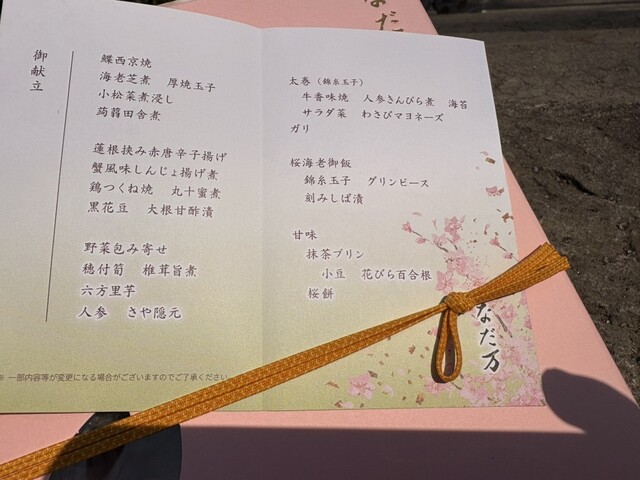 なだ万
御献立
鰈西京焼
海老芝煮 厚焼玉子
小松菜煮浸し
蒟蒻田舎煮
蓮根挟み赤唐辛子揚げ
蟹風味しんじょ揚げ煮
鶏つくね焼 丸十蜜煮
黒花豆 大根甘酢漬
野菜包み寄せ
穂付筍 椎茸旨煮
六方里芋
人参 さや隠元
※ 一部内容等が変更になる場合がございますのでご了承ください。
太巻（錦糸玉子）
牛香味焼 人参きんぴら煮 海苔
サラダ菜 わさびマヨネーズ
ガリ
桜海老御飯
錦糸玉子 グリンピース
刻みしば漬
甘味
抹茶プリン
小豆 花びら百合根
桜餅
なだ万